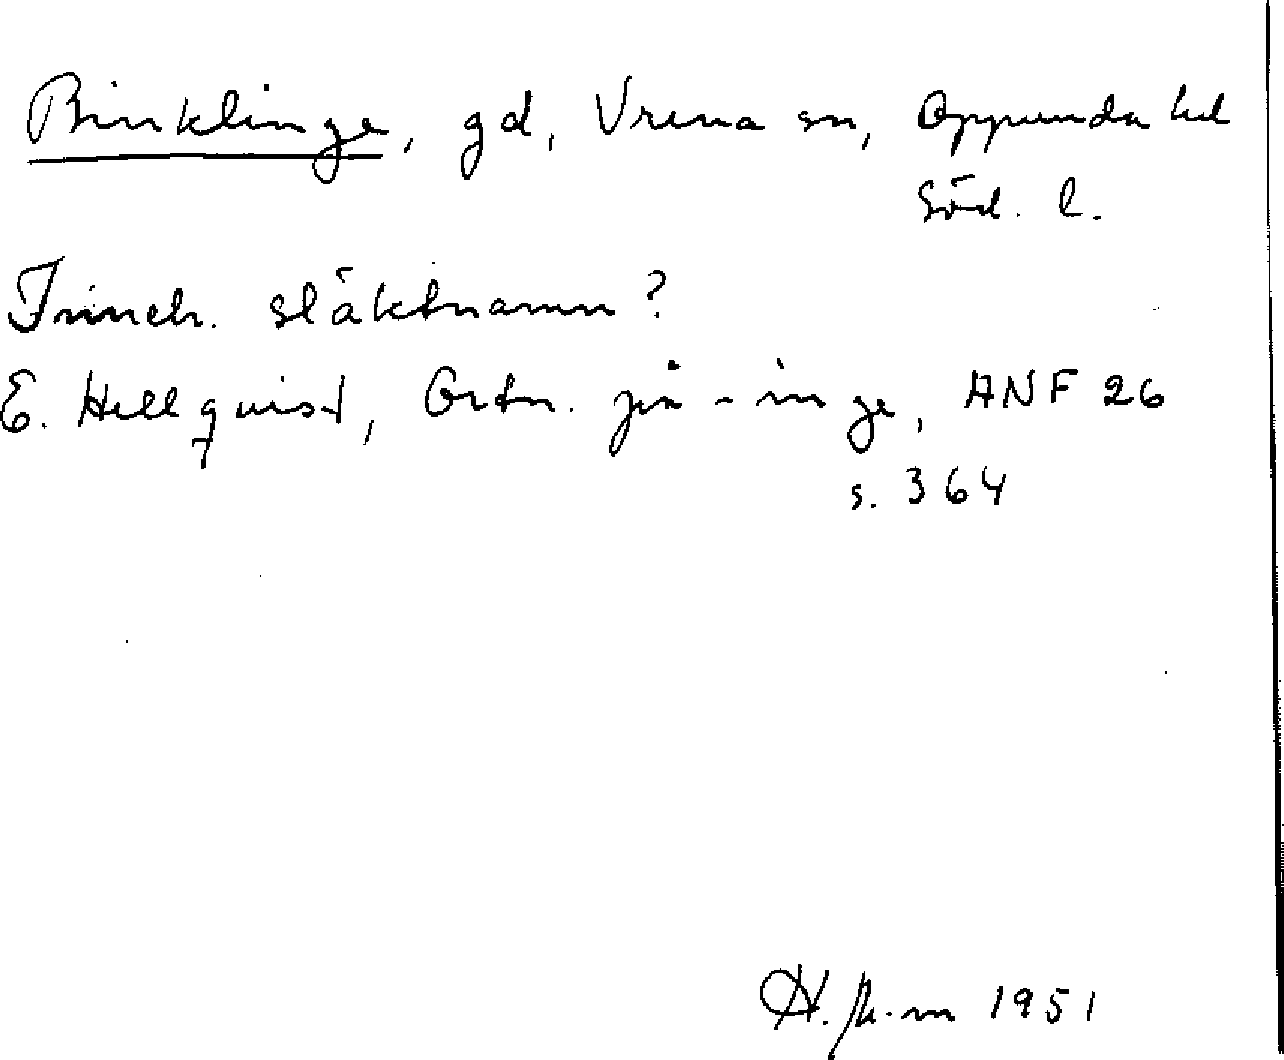 Binklinge, gd, Vrena sn, Oppunda hd
Söd. l.
Inneh. släktnamn?
E. Hellquist, Ortn. på -inge, ANF 26
s. 364
H. 1951